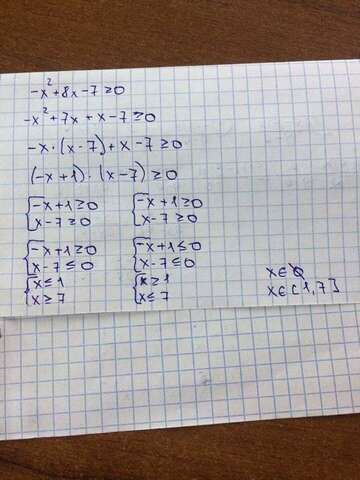 -x²+8x-7≥0
-x²+7x+x-7≥0
-x·(x-7)+x-7≥0
(-x+1)·(x-7)≥0
{-x+1≥0 {-x+1≥0
x-7≥0 x-7≥0
{-x+1≥0 {-x+1≤0
x-7≤0 x-7≤0
{x≤1 {x≥1
x≥7 x≤7
x∈∅
x∈[1,7]